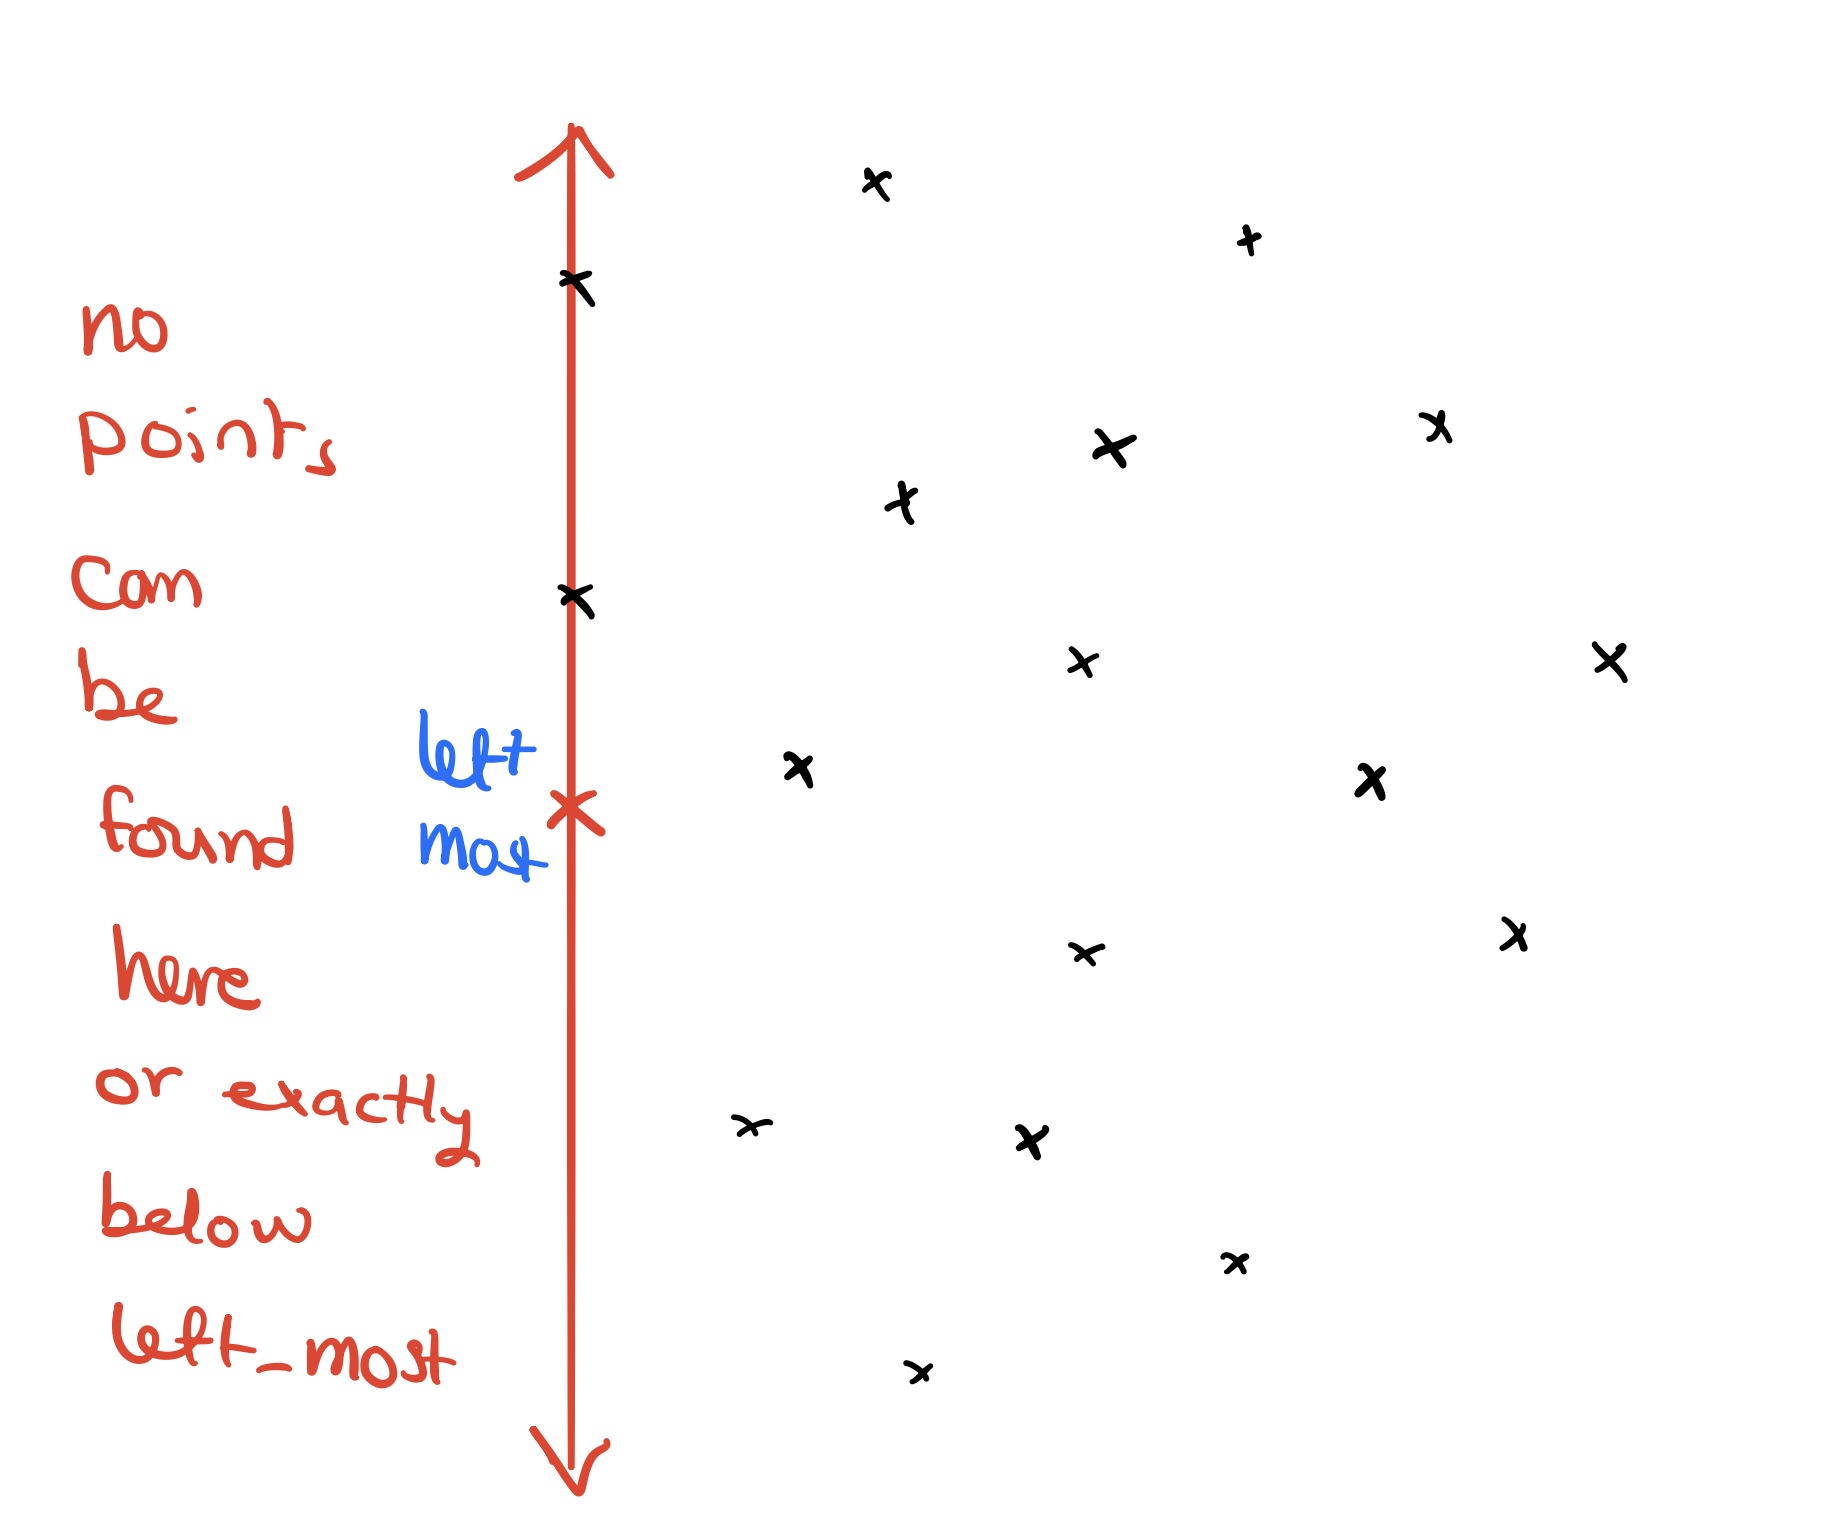 no
points
can
be
found
here
or exactly
below
left_most
left
most